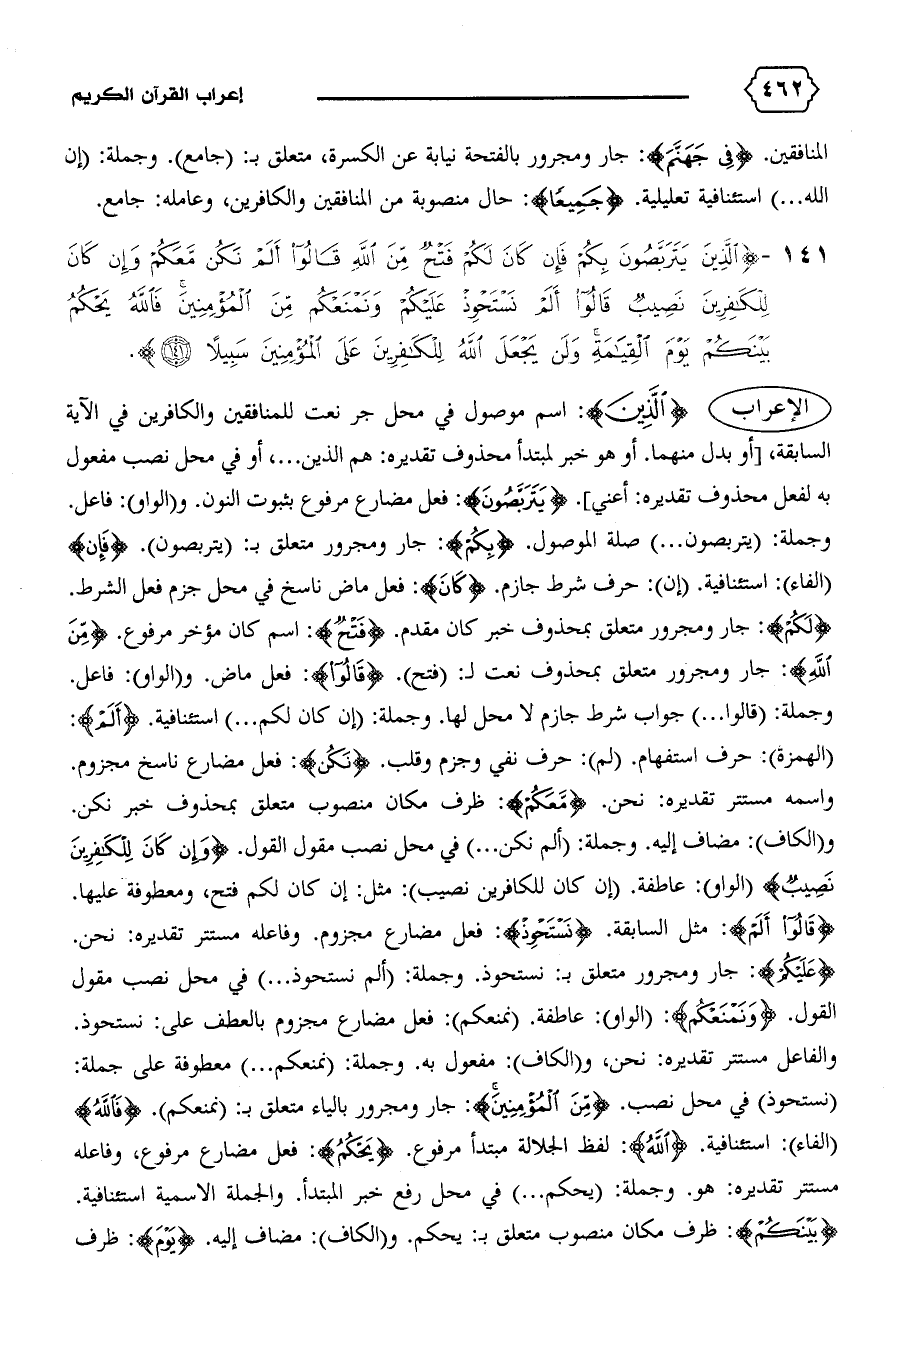 ٤٦٢
إعراب القرآن الكريم
المنافقين. ﴿فِي جَهَنَّمَ﴾: جار ومجرور بالفتحة نيابة عن الكسرة، متعلق بـ: (جامع). وجملة: (إن
الله...) استئنافية تعليلية. ﴿جَمِيعًا﴾: حال منصوبة من المنافقين والكافرين، وعامله: جامع.
١٤١ -﴿ٱلَّذِينَ يَتَرَبَّصُونَ بِكُمْ فَإِن كَانَ لَكُمْ فَتْحٌ مِّنَ ٱللَّهِ قَالُوٓا۟ أَلَمْ نَكُن مَّعَكُمْ وَإِن كَانَ
لِلْكَـٰفِرِينَ نَصِيبٌ قَالُوٓا۟ أَلَمْ نَسْتَحْوِذْ عَلَيْكُمْ وَنَمْنَعْكُم مِّنَ ٱلْمُؤْمِنِينَ ۚ فَٱللَّهُ يَحْكُمُ
بَيْنَكُمْ يَوْمَ ٱلْقِيَـٰمَةِ ۗ وَلَن يَجْعَلَ ٱللَّهُ لِلْكَـٰفِرِينَ عَلَى ٱلْمُؤْمِنِينَ سَبِيلًا ١٤١﴾.
الإعراب ﴿ٱلَّذِينَ﴾: اسم موصول في محل جر نعت للمنافقين والكافرين في الآية
السابقة، [أو بدل منهما. أو هو خبر لمبتدأ محذوف تقديره: هم الذين...، أو في محل نصب مفعول
به لفعل محذوف تقديره: أعني]. ﴿يَتَرَبَّصُونَ﴾: فعل مضارع مرفوع بثبوت النون. و(الواو): فاعل.
وجملة: (يتربصون...) صلة الموصول. ﴿بِكُمْ﴾: جار ومجرور متعلق بـ: (يتربصون). ﴿فَإِن﴾
(الفاء): استئنافية. (إن): حرف شرط جازم. ﴿كَانَ﴾: فعل ماض ناسخ في محل جزم فعل الشرط.
﴿لَكُمْ﴾: جار ومجرور متعلق بمحذوف خبر كان مقدم. ﴿فَتْحٌ﴾: اسم كان مؤخر مرفوع. ﴿مِّنَ
ٱللَّهِ﴾: جار ومجرور متعلق بمحذوف نعت لـ: (فتح). ﴿قَالُوٓا۟﴾: فعل ماض. و(الواو): فاعل.
وجملة: (قالوا...) جواب شرط جازم لا محل لها. وجملة: (إن كان لكم...) استئنافية. ﴿أَلَمْ﴾:
(الهمزة): حرف استفهام. (لم): حرف نفي وجزم وقلب. ﴿نَكُن﴾: فعل مضارع ناسخ مجزوم.
واسمه مستتر تقديره: نحن. ﴿مَّعَكُمْ﴾: ظرف مكان منصوب متعلق بمحذوف خبر نكن.
و(الكاف): مضاف إليه. وجملة: (ألم نكن...) في محل نصب مقول القول. ﴿وَإِن كَانَ لِلْكَـٰفِرِينَ
نَصِيبٌ﴾ (الواو): عاطفة. (إن كان للكافرين نصيب): مثل: إن كان لكم فتح، ومعطوفة عليها.
﴿قَالُوٓا۟ أَلَمْ﴾: مثل السابقة. ﴿نَسْتَحْوِذْ﴾: فعل مضارع مجزوم. وفاعله مستتر تقديره: نحن.
﴿عَلَيْكُمْ﴾: جار ومجرور متعلق بـ: نستحوذ. وجملة: (ألم نستحوذ...) في محل نصب مقول
القول. ﴿وَنَمْنَعْكُم﴾: (الواو): عاطفة. (نمنعكم): فعل مضارع مجزوم بالعطف على: نستحوذ.
والفاعل مستتر تقديره: نحن، و(الكاف): مفعول به. وجملة: (نمنعكم...) معطوفة على جملة:
(نستحوذ) في محل نصب. ﴿مِّنَ ٱلْمُؤْمِنِينَ ۚ﴾: جار ومجرور بالياء متعلق بـ: (نمنعكم). ﴿فَٱللَّهُ﴾
(الفاء): استئنافية. ﴿ٱللَّهُ﴾: لفظ الجلالة مبتدأ مرفوع. ﴿يَحْكُمُ﴾: فعل مضارع مرفوع، وفاعله
مستتر تقديره: هو. وجملة: (يحكم...) في محل رفع خبر المبتدأ. والجملة الاسمية استئنافية.
﴿بَيْنَكُمْ﴾: ظرف مكان منصوب متعلق بـ: يحكم. و(الكاف): مضاف إليه. ﴿يَوْمَ﴾: ظرف